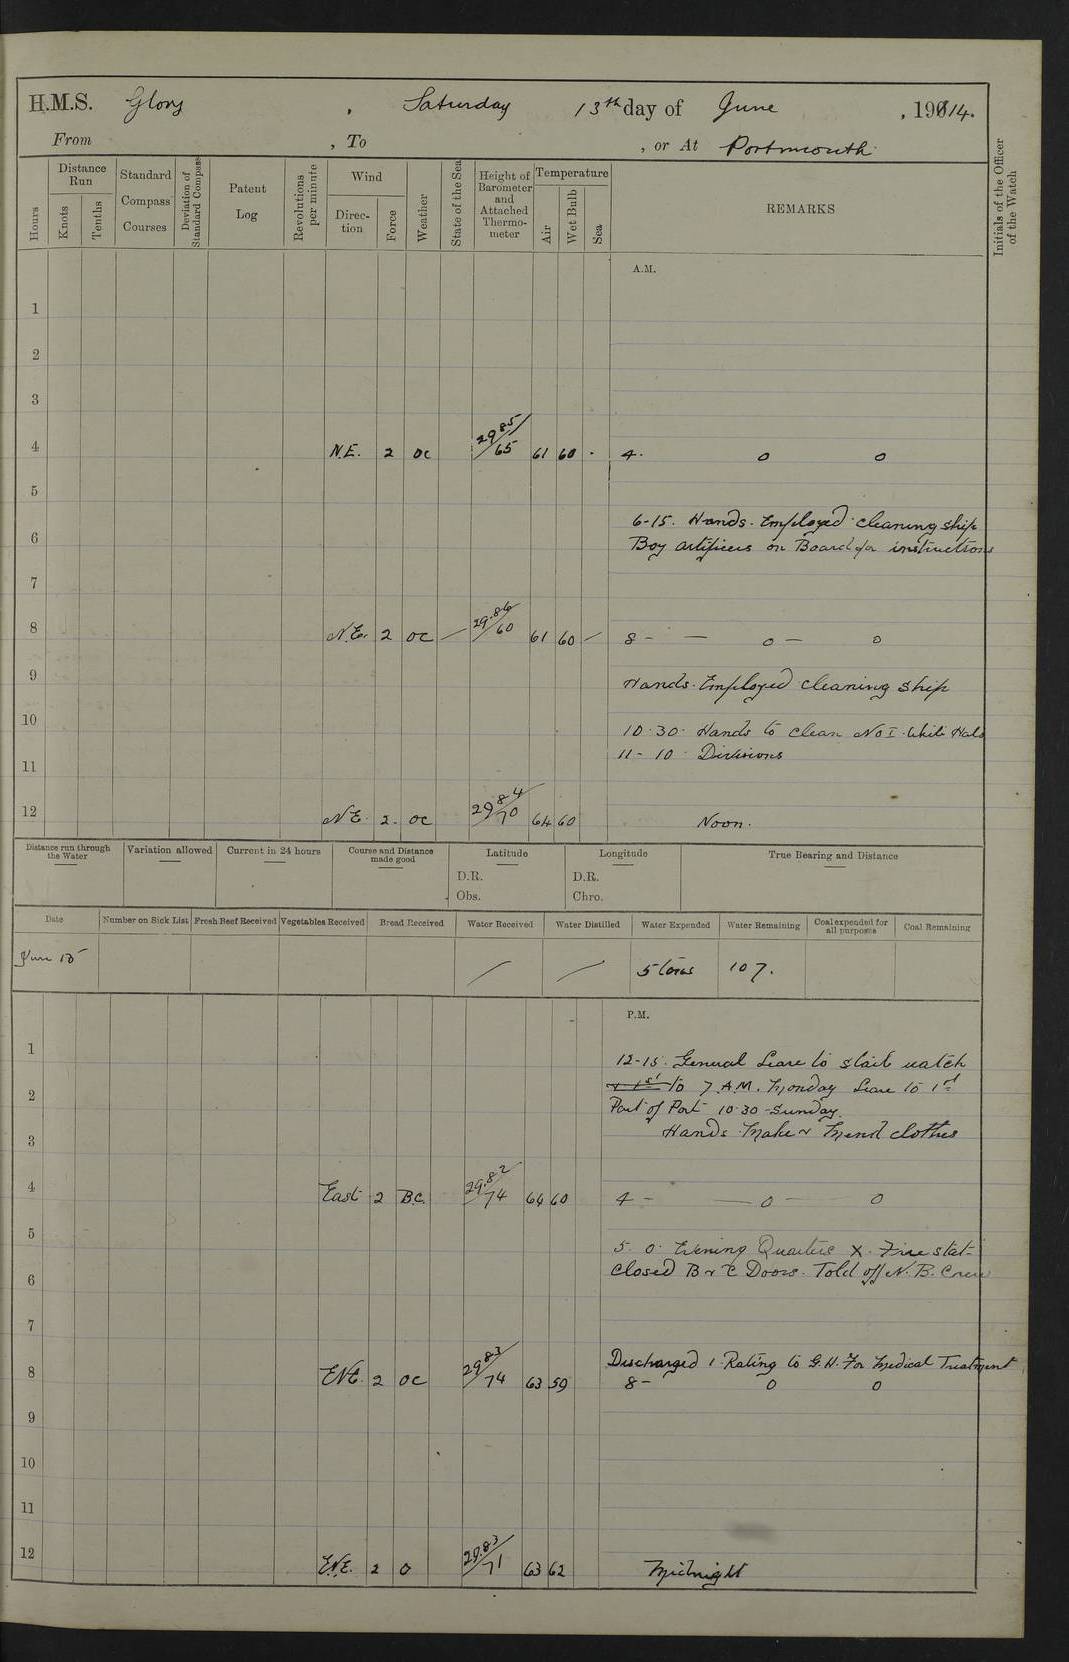 H.M.S. Glory, Saturday 13th day of June, 1914.
From , To , or At Portsmouth
Hours
Distance Run
Knots
Tenths
Standard Compass Courses
Deviation of Standard Compass
Patent Log
Revolutions per minute
Wind
Direc-tion
Force
Weather
State of the Sea
Height of Barometer and Attached Thermo-meter
Temperature
Air
Wet Bulb
Sea
REMARKS
Initials of the Officer of the Watch
A.M.
1
2
3
4 N.E. 2 oc 29.85/65 61 60 - 4. 0 0
5
6-15. Hands. Employed cleaning ship
6
Boy artificers on Board for instructions
7
8 N.E. 2 oc — 29.86/60 61 60 — 8 - — 0 — 0
9
Hands. Employed cleaning ship
10
10.30. Hands to clean No I. White Hats
11 - 10. Divisions
11
12 N.E. 2. oc 29.84/70 64 60 Noon.
Distance run through the Water
Variation allowed
Current in 24 hours
Course and Distance made good
Latitude
D.R.
Obs.
Longitude
D.R.
Chro.
True Bearing and Distance
Date
Number on Sick List
Fresh Beef Received
Vegetables Received
Bread Received
Water Received
Water Distilled
Water Expended
Water Remaining
Coal expended for all purposes
Coal Remaining
June 13 — — 5 tons 107.
P.M.
1
12-15. General Leave to starb watch
2
& 1st to 7 A.M. Monday Leave to 1st
Part of Port 10.30 Sunday.
3
Hands. Make & Mend clothes
4 East 2 B.C. 29.82/74 64 60 4 - — 0 — 0
5
5. 0. Evening Quarters X. Fire stat-
6
closed B & C Doors. Told off N.B. Crew
7
Discharged 1 Rating to G.H. For Medical Treatment
8 ENE. 2 oc 29.83/74 63 59 8 - 0 0
9
10
11
12 E.N.E. 2 o 29.83/71 63 62 Midnight